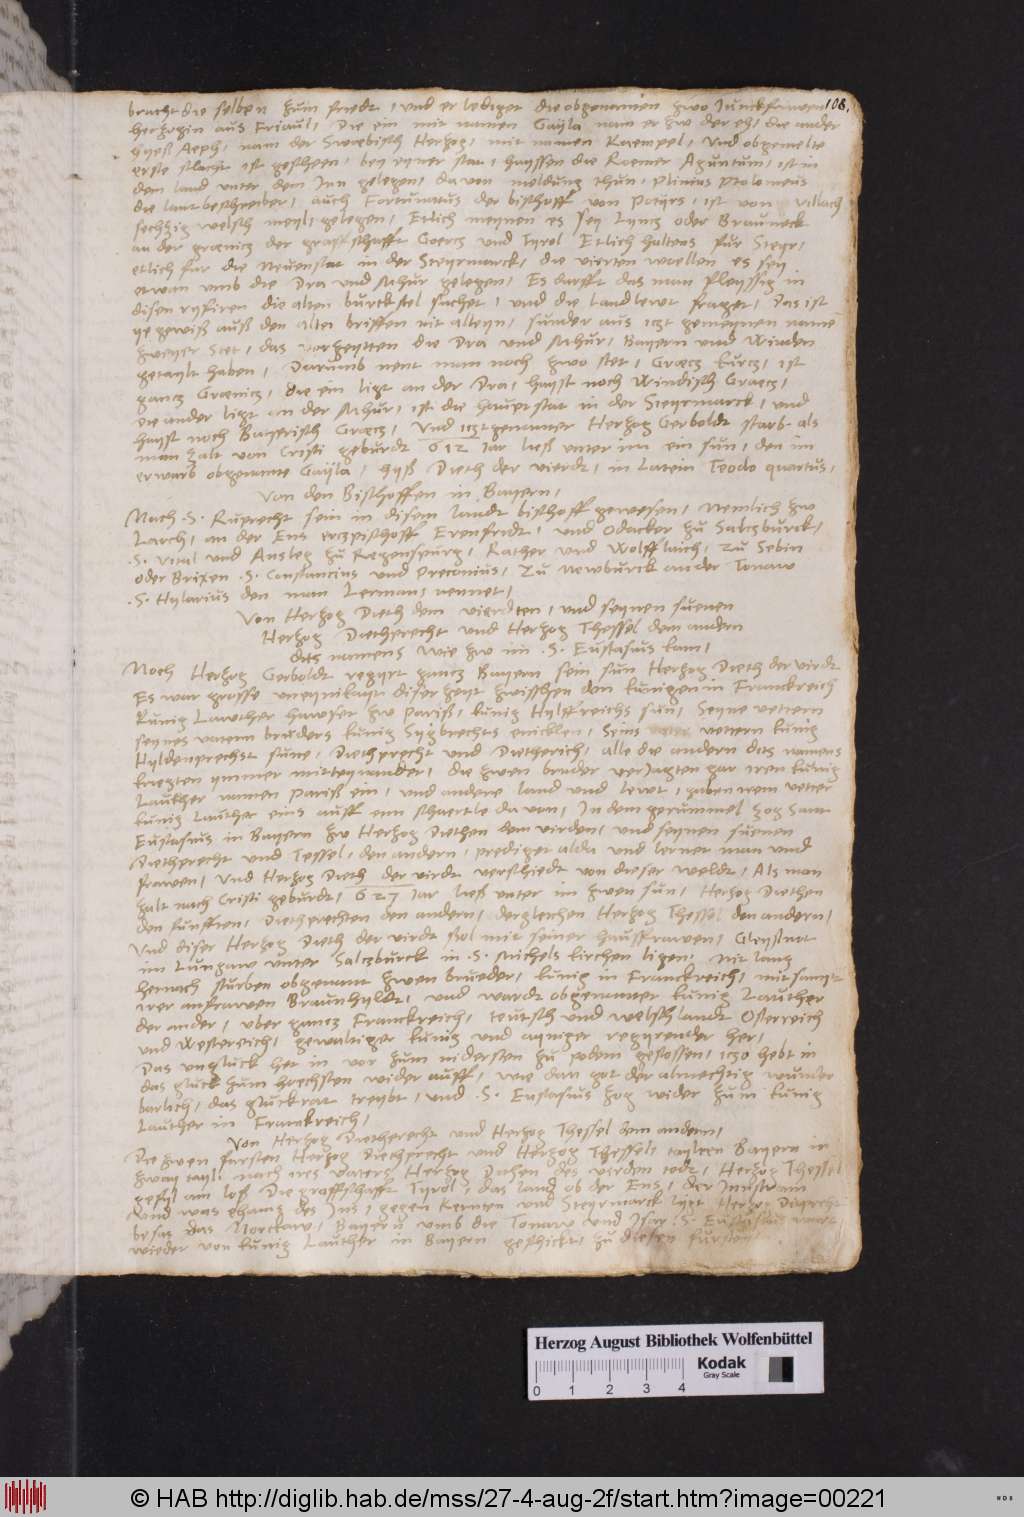 108.
bracht die selben zum friedt, und er lediget die obgenanten zwo Junckfrawen
herzogin aus Friaul, Die ein mit namen Gayla nam er zw der eh, die ander
hyeß Aeph, nam der Swebisch Herzog, mit namen Kaempel, Und obgemelte
erste slacht ist gescheen, bey eyner stat, hayssen die Roemer Aguntum, ist in
dem land unter dem Inn gelegen, da von meldung thun, Plinius Ptolomeus
die lantbeschreiber, auch Fortunatus der bischoff von Poeyrs, ist von Villach
sechzig welsch meyl, gelegen, Etlich meynen es sey Lyncz oder Brauneck
an der graenicz der graffschafft Goercz und Tyrol Etlich haltens fur Steyr,
etlich fur die Neuenstat in der Steyrmarck, die vierten woellen es sey
etwan umb die Dra und Mhur gelegen, Es darfft das man fleyssig in
disen ryfiren die alten burckstel suchet, und die landlewt fraget, Das ist
ye gewiß auß den alten brieffen nit alleyn, sunder aus iczt gemeynen name
zweyer Stet, das vorzeytten die Dra und Mhur, Bayern und Winden
getaylt haben, Darumb nent man noch zwo stet, Graecz kurcz, ist
gancz Graenicz, die ein ligt an der Dra, hayst noch Windisch Graecz,
Die ander ligt an der Mhur, ist die hauptstat in der Steyrmarck, und
hayst noch Bayerisch Graecz, Und icztgenanter Herzog Gerboldt starb als
man zalt von Cristi geburdt 612 Jar ließ unter im ein sun, den im
erwarb obgenante Gayla, hyß Dieth der vierdt, in Latein Teodo quartus,
Von den Bischoffen in Bayern,
Nach .S. Ruprecht sein in disem landt bischoff gewesen, Nemlich zw
Larch, an der Ens erczpischoff Erenfridt, und Odacker zu Salczburck,
.S. Vital und Ansleg zu Regenspurg, Rather und Wolfflaich, zu Sebin
oder Brixen .S. Constancius und Preconius, Zu Newburck an der Tonaw
.S. Hylarius den man Lerman, nennet,
Von Herzog Dieth dem vierdten, und seynen suenen
Herzog Diethprecht und Herzog Thessel dem andern
dits namens wie zw im .S. Eustasius kam,
Noch Herzog Gerboldt regyrt gancz Bayern sein sun Herzog Dieth der virdt
Es war grosse uneynikayt diser zeyt zwisschen den kunigen in Franckreich
Kunig Lawther hawset zw Pariß, kunig Hylffreichs sun, Seyne vettern
seynes vatern bruders kunig Sygbrechts enicklen, Seins vettern kunig
Hyldenprechst sune, Diethprecht und Dietherich, alle die andern dits namens
kriegten ymmer mitteynander, die zwen bruder verjagten gar iren kunig
Lauther namen Pariß ein, und andere land und lewt, gaben irem vetter
kunig Lauther eins auff ein schaertle da von, In dem gerummel zog Sant
Eustasius in Bayern zw Herzog Diethen dem virden, und seynen suenen
Diethprecht und Tessel, den andern, prediget alda und lernet man und
frawen, Und Herzog Dieth der virdt verschiedt von dieser weldt, Als man
zalt nach Cristi geburdt, 627 Jar ließ unter im zwen sun, Herzog Diethen
den funfften, Diethprechten den andern, dergleichen Herzog Thessel den andern,
Und diser Herzog Dieth der virdt sol mit seiner hausfrawen, Gleyßnot
im Lungaw unter Salczburck in .S. Michels kirchen ligen, Nit lang
hernach sturben obgenant zwen brueder, kunig in Franckreich, mitsampt
irer anfrawen Braunhyldt, und wardt obgenanter kunig Lauther
der ander, uber gancz Franckreich, teutsch und welschlandt Osterreich
und Westereich, gewaltiger kunig und ayniger regyrender her,
Das ungluck het in vor zum nidersten zu podem gestossen, iczo hebt in
das gluck zum hoechsten wider auff, wie dan got der almechtig wunder
barlich, das gluckrat treybt, und .S. Eustasius zog wider zum kunig
Lauther in Franckreich,
Von Herzog Diethprecht und Herzog Thessel dem andern,
Die zwen fursten Herzog Diethprecht und Herzog Thessel, taylten Bayern in
zway tayl, nach ires vaters Herzog Dithen des vierden todt, Herzog Thessel
gefyl am loß Die graffschafft Tyrol, das land ob der Ens, der Innstram
Und was ehans des Ins, gegen Kernten und Steyrmarck ligt Herzog Diepre​cht
besas das Norckaw, Bayern umb die Tonaw und Iser, .S. Eustasius wart
wieder von kunig Lauther in Bayern geschickt, zu diesen fursten,
Herzog August Bibliothek Wolfenbüttel
Kodak
Gray Scale
0 1 2 3 4
© HAB http://diglib.hab.de/mss/27-4-aug-2f/start.htm?image=00221